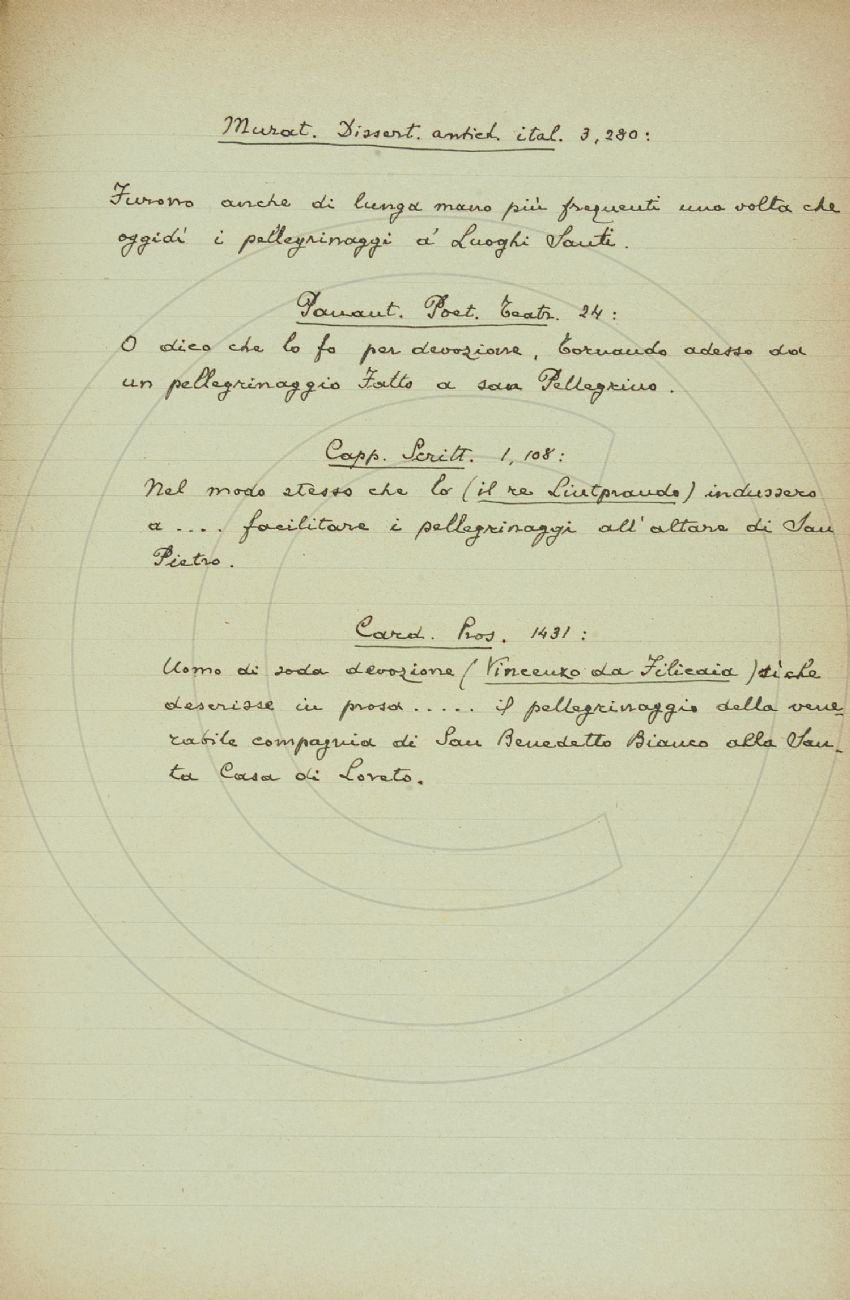 Murat. Dissert. antich. ital. 3, 280:
Furono anche di lunga mano più frequenti una volta che
oggidí i pellegrinaggi a' Luoghi Santi.
Panant. Poet. Teatr. 24:
O dico che lo fo per devozione, tornando adesso da
un pellegrinaggio Fatto a san Pellegrino.
Capp. Scritt. 1, 108:
Nel modo stesso che lo (il re Liutprando) indussero
a .... facilitare i pellegrinaggi all'altare di San
Pietro.
Card. Pros. 1431:
Uomo di soda devozione (Vincenzo da Filicaia) sí che
descrisse in prosa ..... il pellegrinaggio della vene-
rabile compagnia di San Benedetto Bianco alla San-
ta Casa di Loreto.